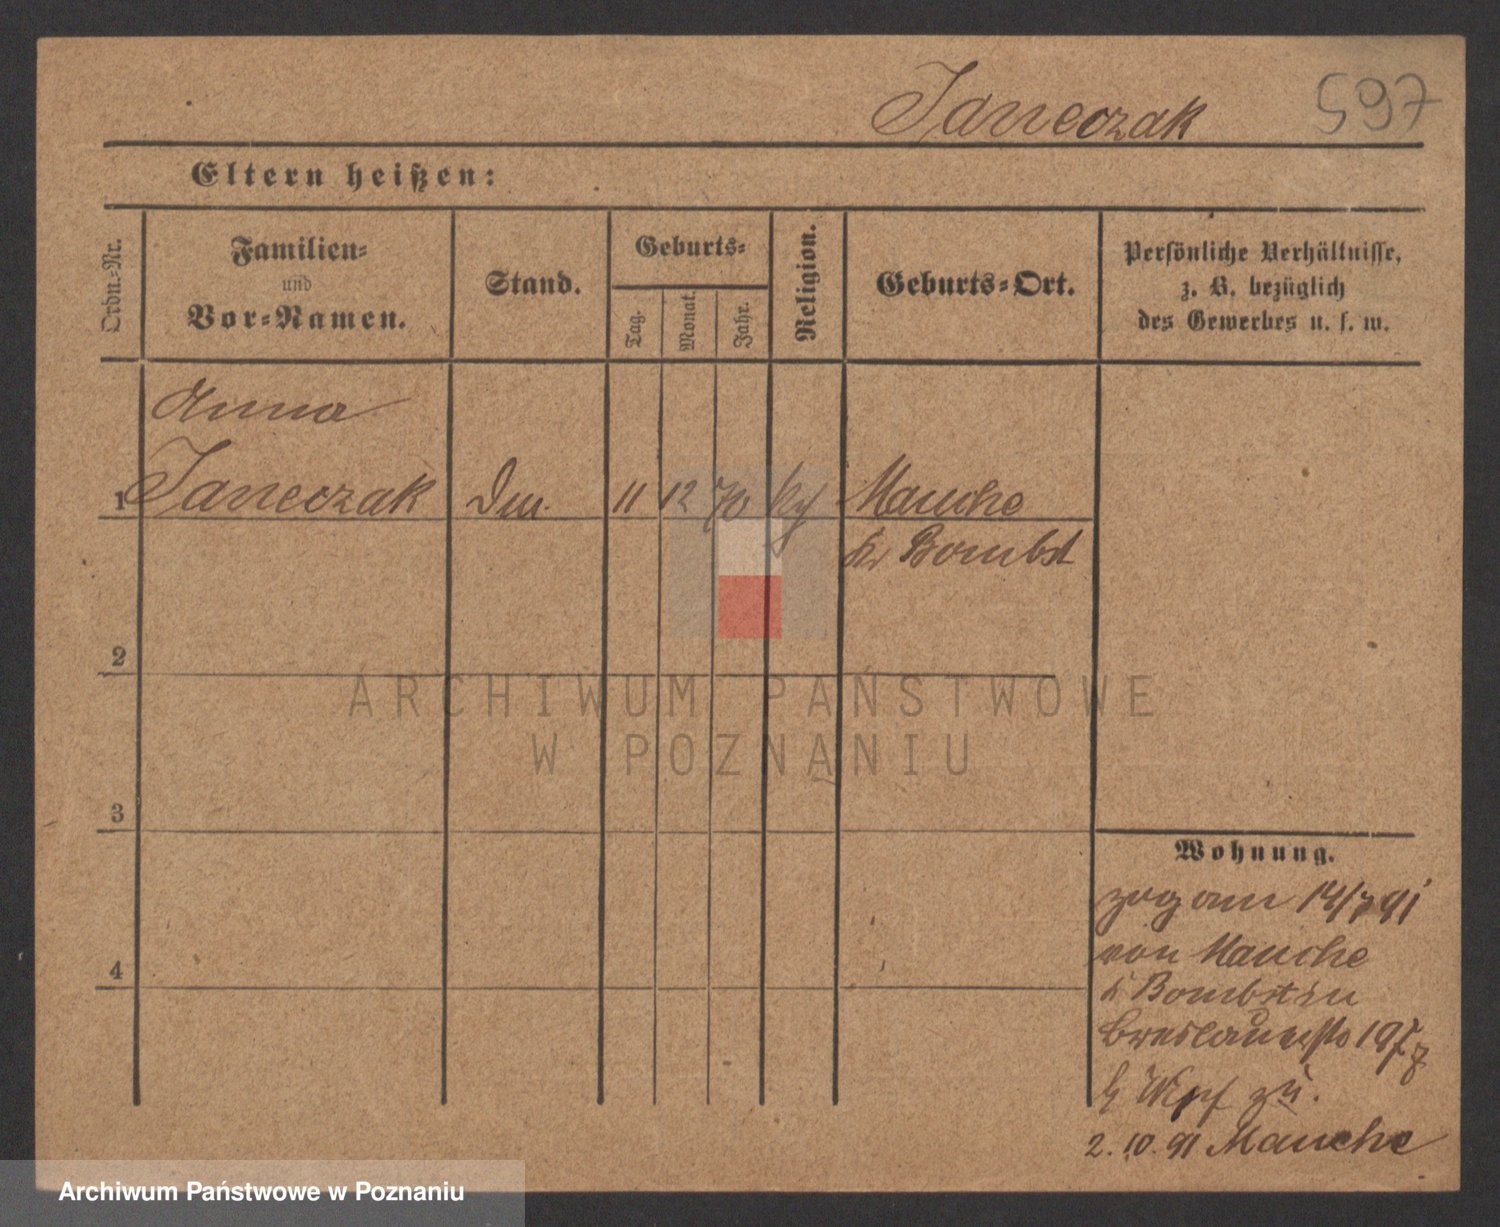 Janeczak 597
Eltern heißen:
Ordn.-Nr.
Familien-
und
Vor-Namen.
Stand.
Geburts-
Tag.
Monat.
Jahr.
Religion.
Geburts-Ort.
Persönliche Verhältnisse,
z. B. bezüglich
des Gewerbes u. s. w.
Anna
1 Janeczak 11 12 70 Mauche
Kr Bombst
2
3
4
ARCHIWUM PAŃSTWOWE
W POZNANIU
Wohnung.
zog am 14/7 91
von Mauche
Bombst in
zu.
2. 10. 91 Mauche
Archiwum Państwowe w Poznaniu